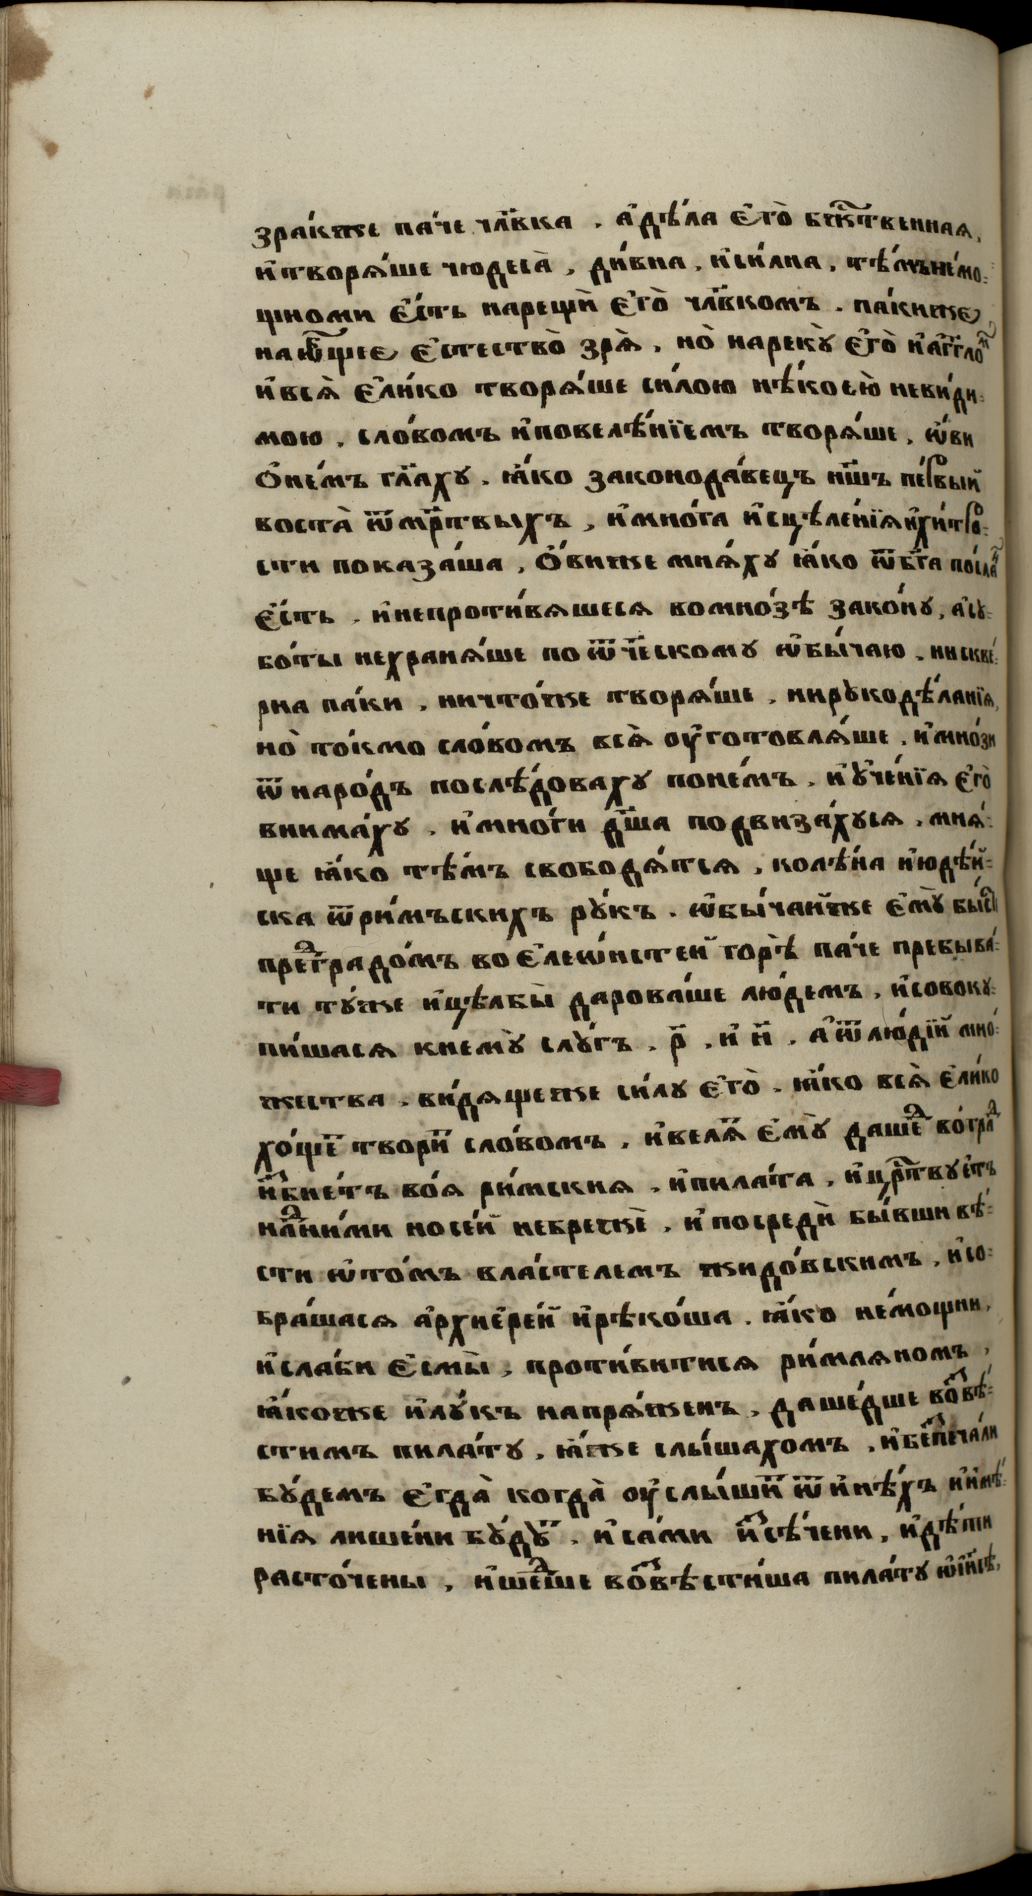 зра́къже па́че чл҃вка . а҆дѣ́ла є҆го̀ бж҇твенная,
и҆творя́ше чюдеса̀, ди́вна, и҆си́лна, тѣ́мъне́мо:
щноми є҆́сть нарещѝ є҆го̀ чл҃вкомъ . па́киже
наѡ҆́бщее є҆стество̀ зря̀, но̀ нарекꙋ̀ є҆го̀ и҆а҆́гг҃ломъ
и҆вся̀ є҆ли́ко творя́ше си́лою нѣ́коею̀ неви́ди:
мою, сло́вомъ и҆повелѣ́нїемъ творя́ше, ѡ҆́ви
о҆не́мъ гл҃аху . ꙗ҆́ко законода́вецъ на́шъ пе́рвый
воста̀ ѿме́ртвыхъ, и҆мно́га и҆сцѣле́нїя и҆хи́тро:
сти показа́ша, о҆́виже мня́ху ꙗ҆́ко ѿбг҃а по́сла
є҆́сть . и҆непроти́вяшеся вомно́зѣ зако́ну, а҆сꙋ:
бо́ты нехраня́ше поѿче́скому ѡ҆бы́чаю . нискве́:
рна па́ки, ничто́же творя́ше, нирꙋкодѣ́ланїя,
но̀ то́кмо сло́вомъ вся̀ оу҆готовля́ше . и҆мно́зи
ѿнаро́дъ послѣ́доваху поне́мъ . и҆ꙋ҆че́нїя є҆го̀
внима́ху . и҆мно́ги дш҃а подвиза́хуся . мня́:
ще ꙗ҆́ко тѣ́мъ свободя́тся, колѣ́на и҆юдѣ́й:
ска ѿри́мъскихъ рꙋ́къ . ѡ҆бы́чайже є҆мꙋ̀ бы́сть
предгра́домъ во є҆леѡ́нстей горѣ̀ па́че пребыва́:
ти тꙋ́же и҆цѣлбы̀ дарова́ше лю́демъ, и҆совокꙋ:
пи́шася кнемꙋ̀ слꙋ́гъ . р҃ . и҆ н҃ . а҆ѿлю́дїй мно́:
жества . ви́дящеже си́лу є҆го̀ . ꙗ҆́ко вся̀ є҆ли́ко
хо́щетъ твори́тъ сло́вомъ . и҆веля́тъ є҆мꙋ̀ даше́дъ во́градъ
и҆збие́тъ во́я ри́мския, и҆пила́та, и҆цр҇твуетъ
надни́ми носе́й небрежѐ, и҆посредѝ бы́вши вѣ́:
сти ѡ҆то́мъ вла́стелемъ жидо́вскимъ, и҆со:
бра́шася а҆рхиє҆ре́й и҆рѣко́ша . ꙗ҆́ко не́мощни,
и҆сла́би є҆смы̀, проти́витися ри́мляномъ,
ꙗ҆́коже и҆лꙋ́къ напря́женъ, даше́дше возвѣ:
сти́мъ пила́ту, ꙗ҆́же слы́шахомъ, и҆беспеча́ли
бꙋ́демъ є҆гда̀ когда̀ оу҆слы́шитъ ѿи҆нѣ́хъ и҆и҆мѣ́:
нїя лише́ни бꙋ́дꙋтъ . и҆са́ми и҆зсѣ́чени, и҆дѣ́ти
расто́чены, и҆ше́дше возвѣсти́ша пила́ту ѡ҆і҆и҃сѣ,